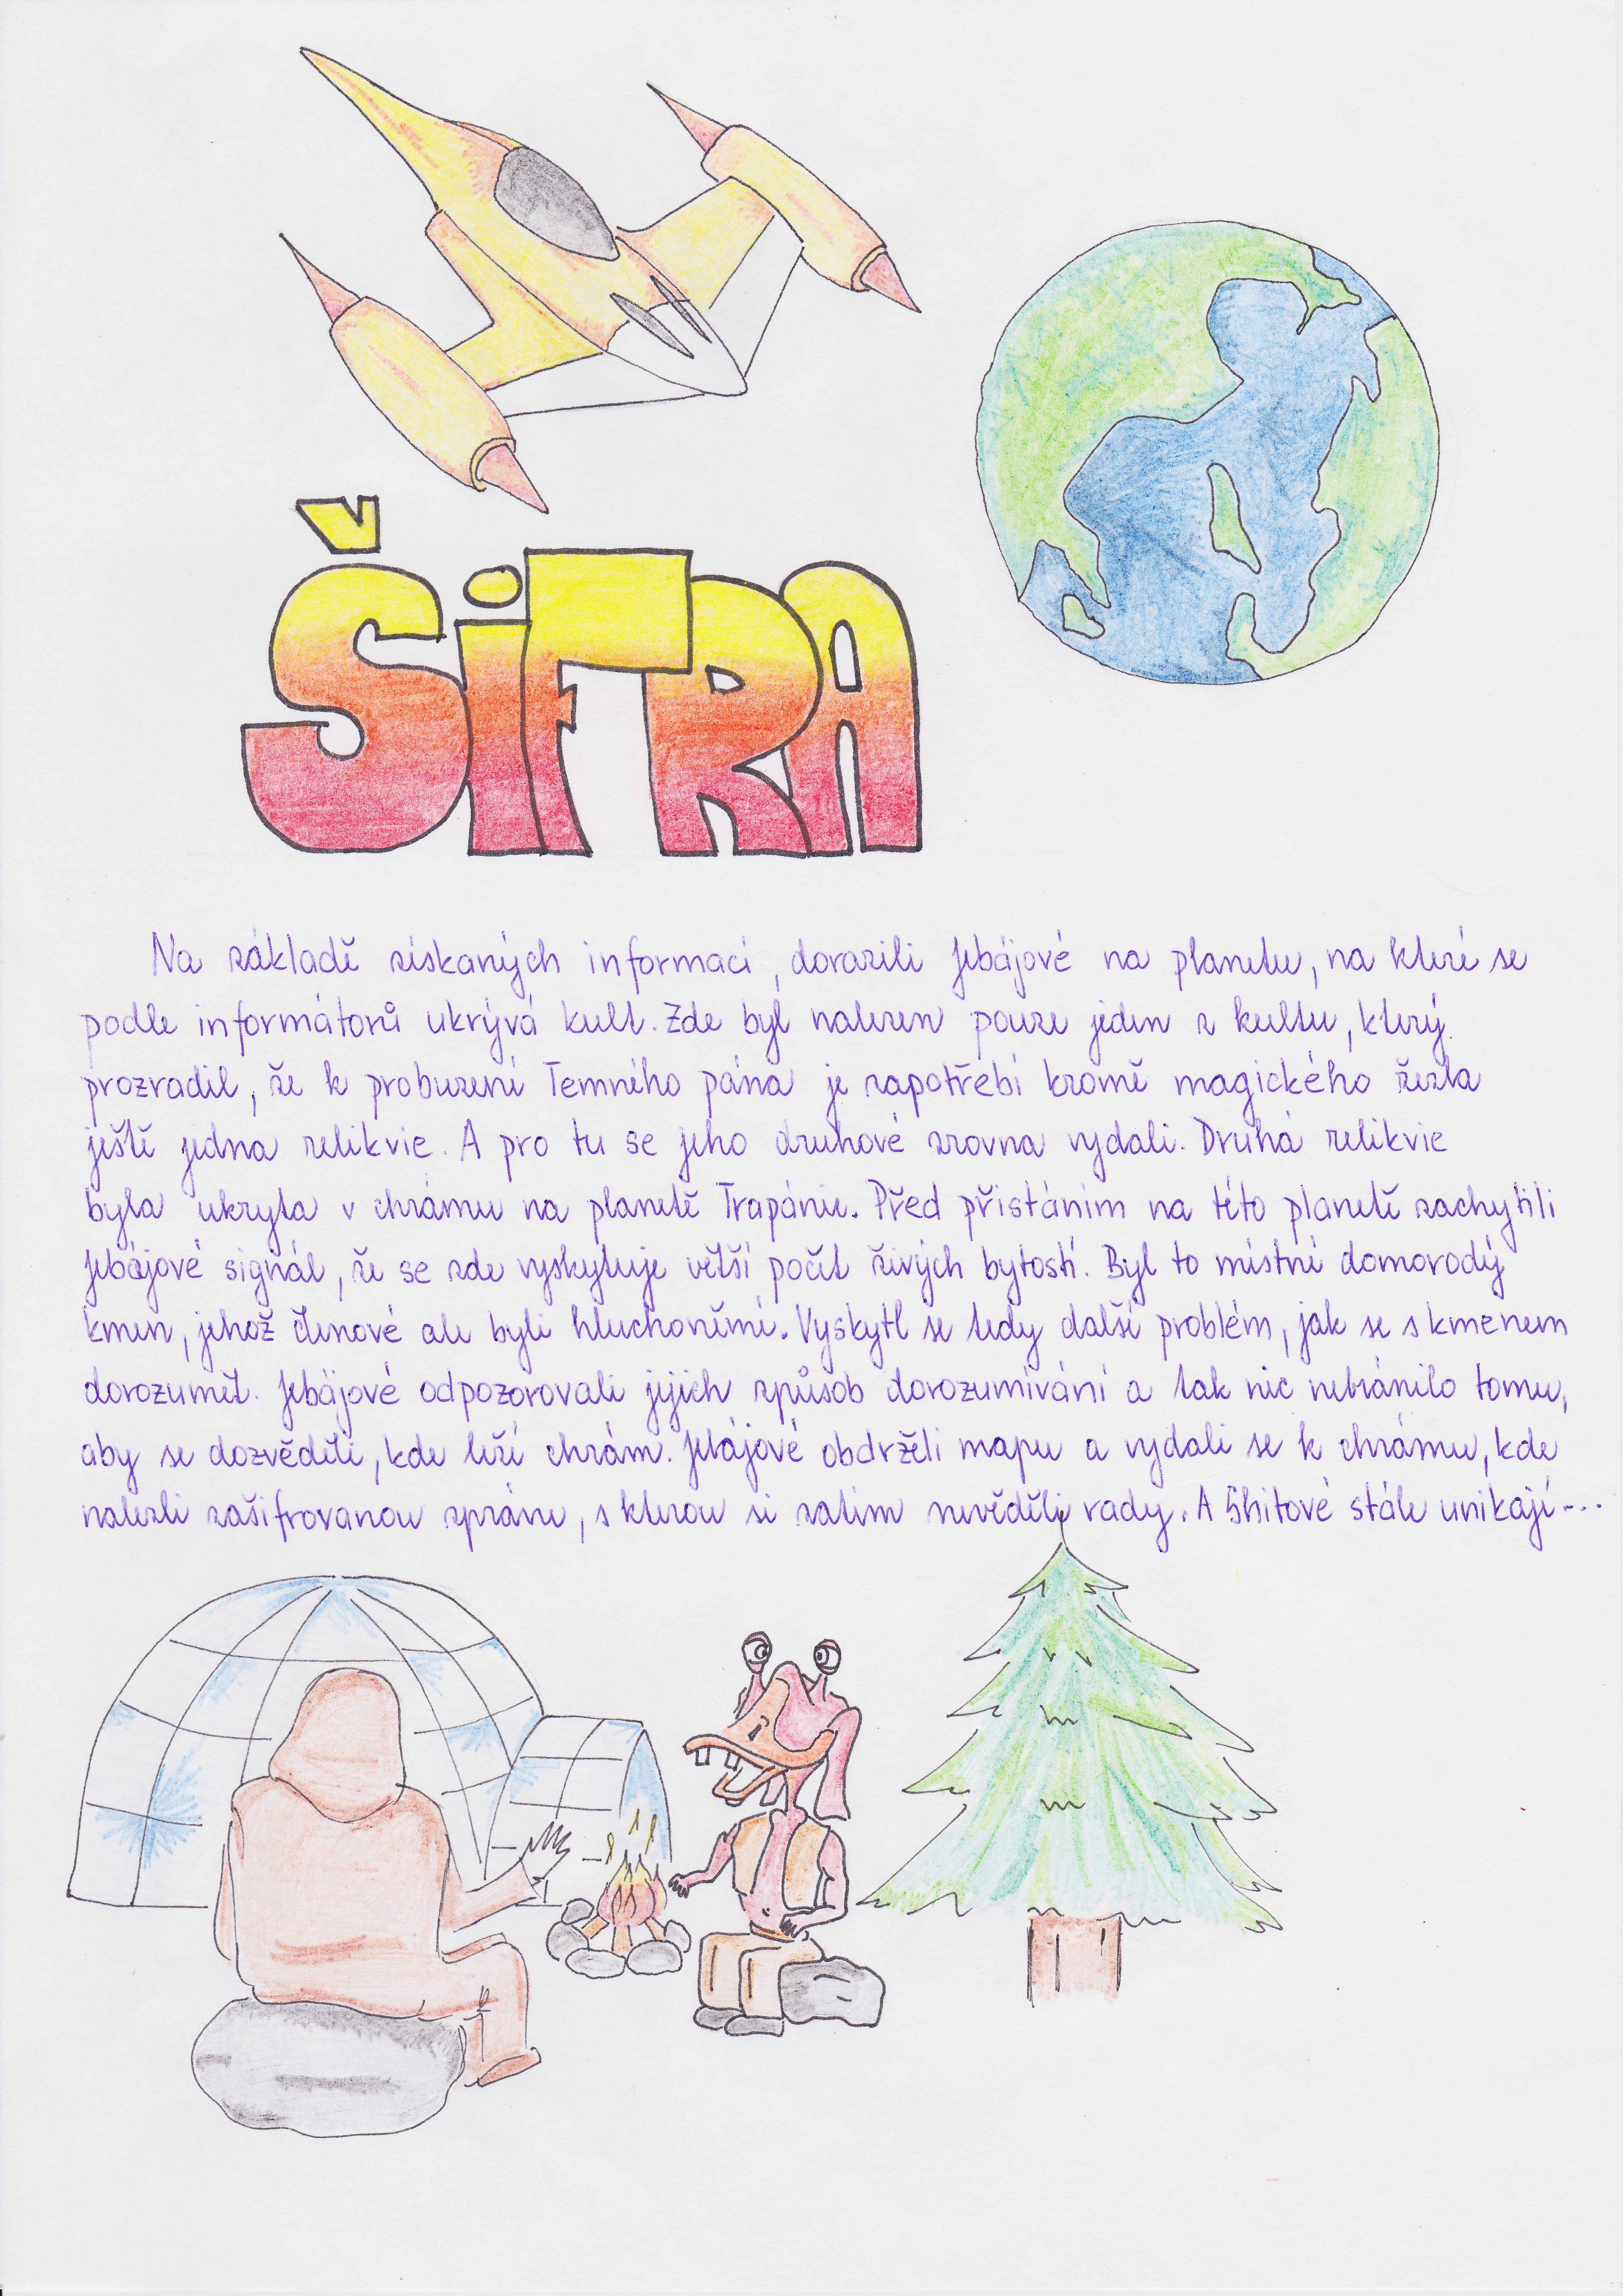 ŠiFRA
Na základě získaných informací, dorazili Jebájové na planetu, na které se
podle informátorů ukrývá kult. Zde byl nalezen pouze jeden z kultu, který
prozradil, že k probuzení Temného pána je zapotřebí kromě magického žezla
ještě jedna relikvie. A pro tu se jeho druhové zrovna vydali. Druhá relikvie
byla ukryta v chrámu na planetě Trapánie. Před přistáním na této planetě zachytili
Jebájové signál, že se zde vyskytuje větší počet živých bytostí. Byl to místní domorodý
kmen, jehož členové ale byli hluchoněmí. Vyskytl se tedy další problém, jak se s kmenem
dorozumět. Jebájové odpozorovali jejich způsob dorozumívání a tak nic nebránilo tomu,
aby se dozvěděli, kde leží chrám. Jebájové obdrželi mapu a vydali se k chrámu, kde
nalezli zašifrovanou zprávu, s kterou si zatím nevěděli rady. A Shitové stále unikají...